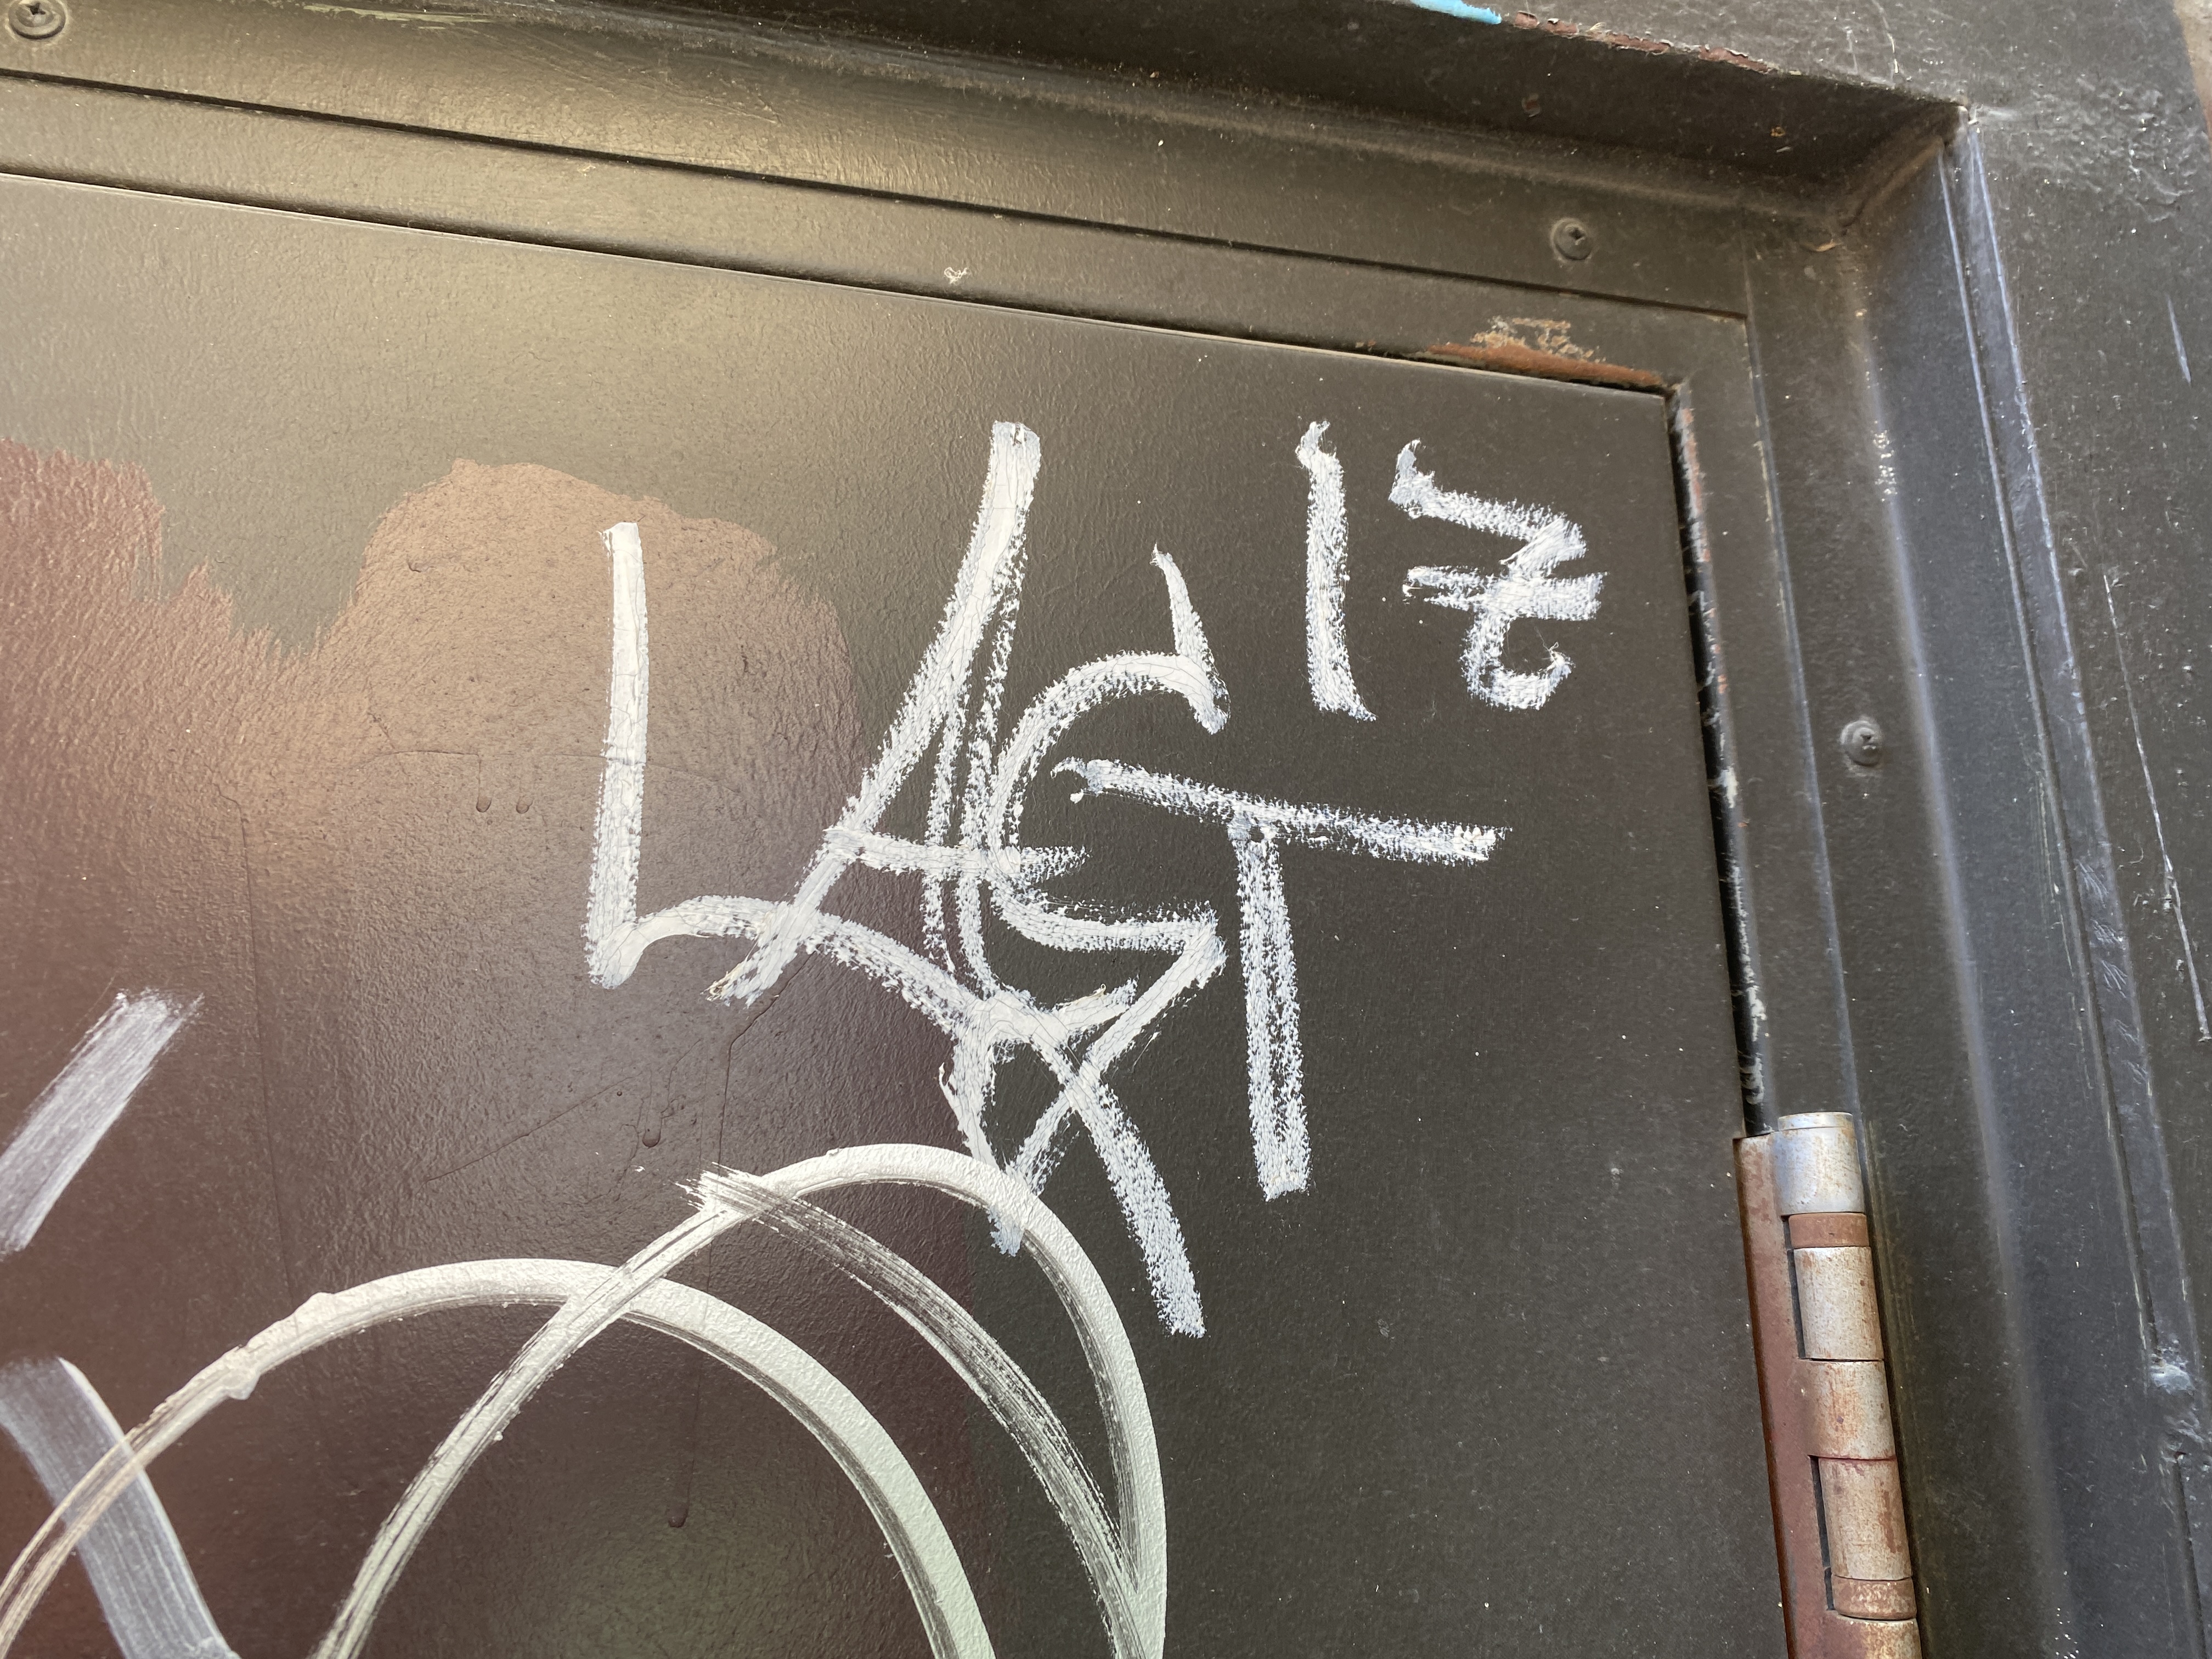 LAST 17